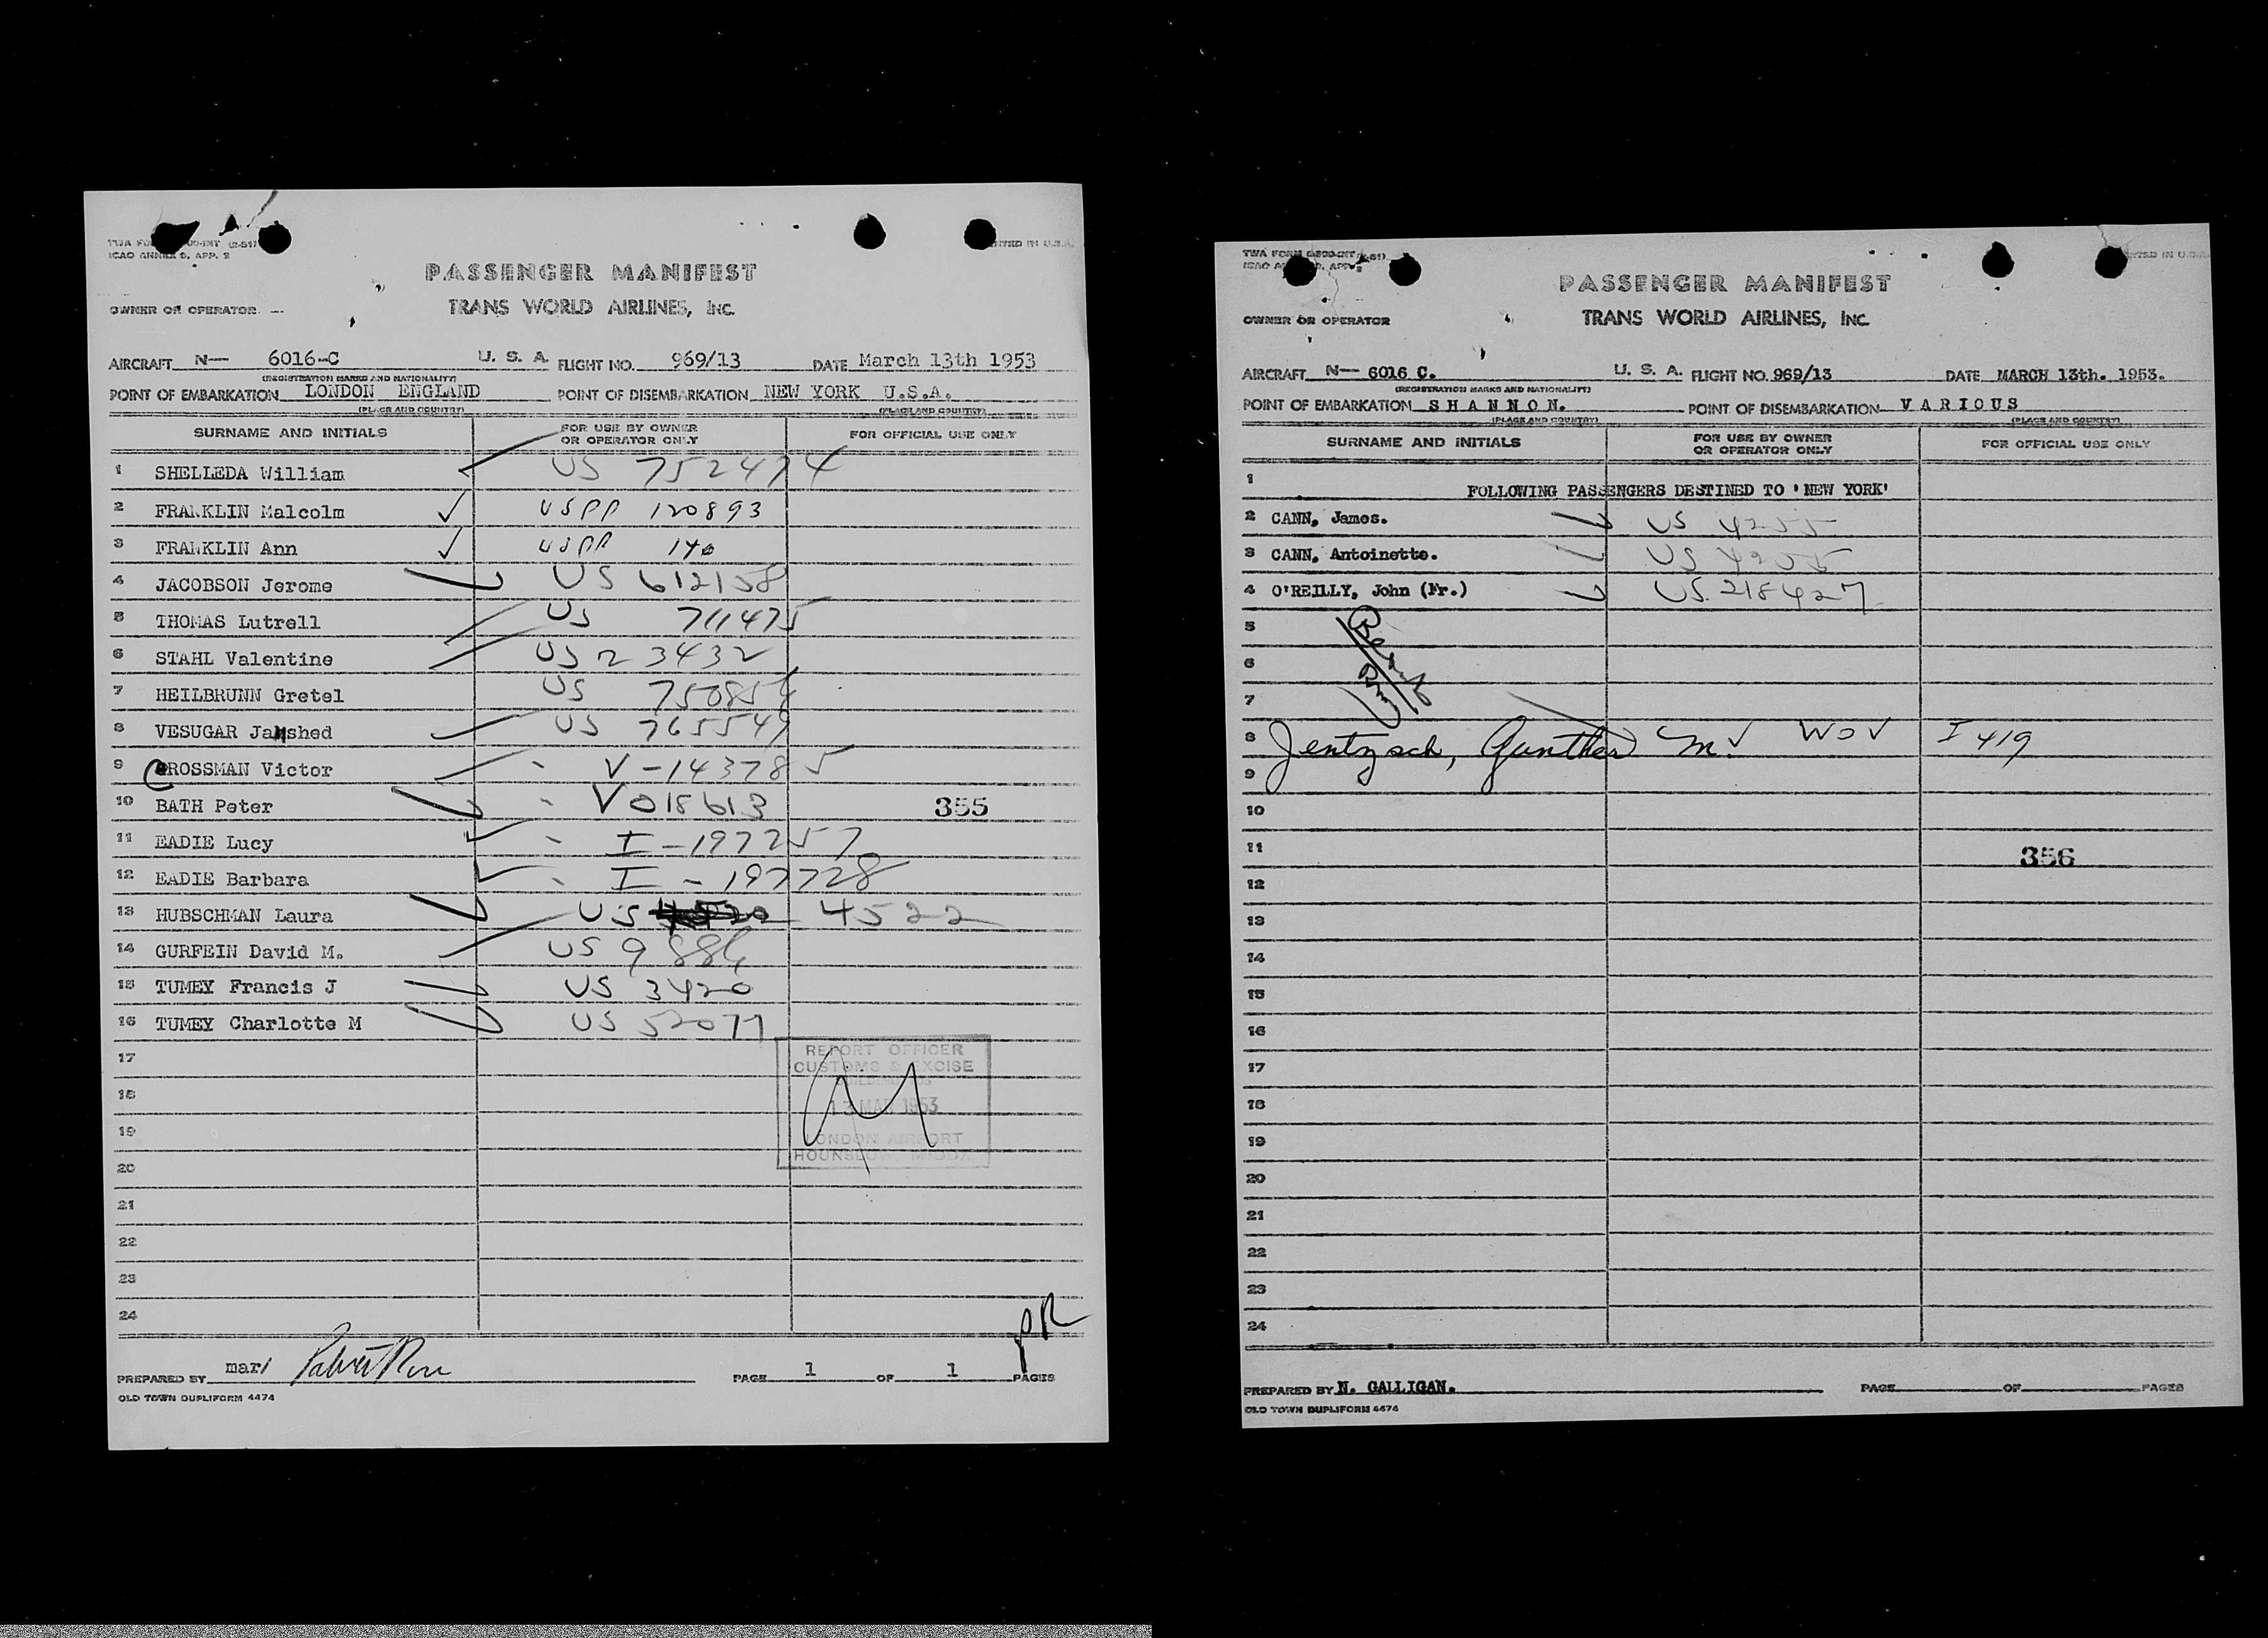 PASSENGER MANIFEST
OWNER OR OPERATOR TRANS WORLD AIRLINES, INC.
AIRCRAFT N— 6016-C U. S. A. FLIGHT NO. 969/13 DATE March 13th 1953
(REGISTRATION MARKS AND NATIONALITY)
POINT OF EMBARKATION LONDON ENGLAND POINT OF DISEMBARKATION NEW YORK U.S.A.
(PLACE AND COUNTRY) (PLACE AND COUNTRY)
SURNAME AND INITIALS FOR USE BY OWNER OR OPERATOR ONLY FOR OFFICIAL USE ONLY
1 SHELLEDA William US 752474
2 FRANKLIN Malcolm USPP 120893
3 FRANKLIN Ann USPP 140
4 JACOBSON Jerome US 612158
5 THOMAS Lutrell US 711475
6 STAHL Valentine US 23432
7 HEILBRUNN Gretel US 750854
8 VESUGAR Jamshed US 765549
9 CROSSMAN Victor V-143785
10 BATH Peter V018613 355
11 EADIE Lucy I-197257
12 EADIE Barbara I-197728
13 HUBSCHMAN Laura US 4522
14 GURFEIN David M. US 9886
15 TUMEY Francis J US 3420
16 TUMEY Charlotte M US 52077
17
REPORT OFFICER
CUSTOMS & EXCISE
18
13 MAR 1953
19
LONDON AIRPORT
HOUNSLOW, MIDDX.
20
21
22
23
24
PR
PREPARED BY mari PAGE 1 OF 1 PAGES
OLD TOWN DUPLIFORM 4474
PRINTED IN U.S.A.
PASSENGER MANIFEST
OWNER OR OPERATOR TRANS WORLD AIRLINES, INC.
AIRCRAFT N— 6016 C. U. S. A. FLIGHT NO. 969/13 DATE MARCH 13th. 1953.
(REGISTRATION MARKS AND NATIONALITY)
POINT OF EMBARKATION SHANNON. POINT OF DISEMBARKATION VARIOUS
(PLACE AND COUNTRY) (PLACE AND COUNTRY)
SURNAME AND INITIALS FOR USE BY OWNER OR OPERATOR ONLY FOR OFFICIAL USE ONLY
1 FOLLOWING PASSENGERS DESTINED TO 'NEW YORK'
2 CANN, James. US 4255
3 CANN, Antoinette. US 4255
4 O'REILLY, John (Fr.) US 218427
5
6
7
8 Jentzsch, Gunther M. I 419
9
10
11 356
12
13
14
15
16
17
18
19
20
21
22
23
24
PREPARED BY N. GALLIGAN. PAGE OF PAGES
OLD TOWN DUPLIFORM 4474